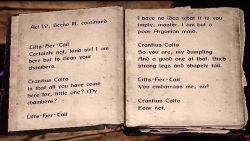 Act IV, Scene III, continued
Lifts-Her-Tail
Certainly not, kind sir! I am
here but to clean your
chambers.
Crantius Colto
Is that all you have come
here for, little one? My
chambers?
Lifts-Her-Tail
I have no idea what it is you
imply, master. I am but a
poor Argonian maid.
Crantius Colto
So you are, my dumpling.
And a good one at that. Such
strong legs and shapely tail.
Lifts-Her-Tail
You embarrass me, sir!
Crantius Colto
Fear not.